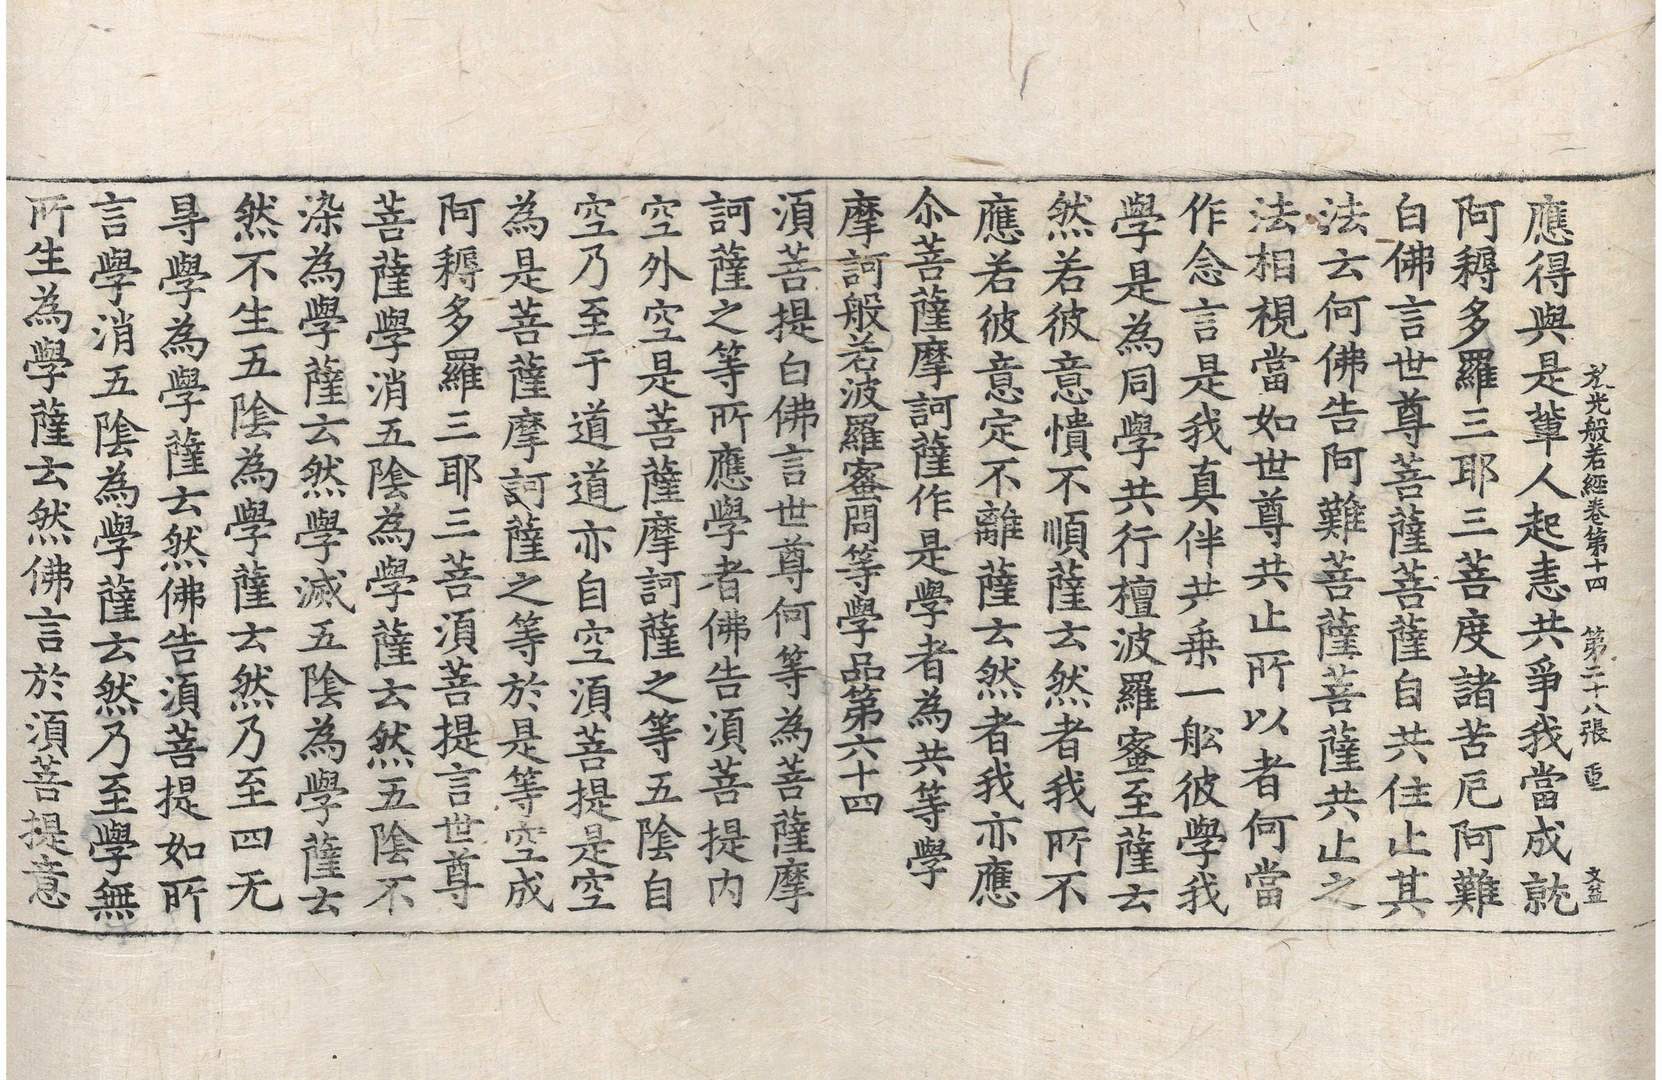 放光般若經卷第十四 第二十八張 重 文益
應得與是輩人起恚共爭我當成就
阿耨多羅三耶三菩度諸苦厄阿難
白佛言世尊菩薩菩薩自共住止其
法云何佛告阿難菩薩菩薩共止之
法相視當如世尊共止所以者何當
作念言是我真伴共乗一舩彼學我
學是為同學共行檀波羅蜜至薩云
然若彼意憒不順薩云然者我所不
應若彼意定不離薩云然者我亦應
尒菩薩摩訶薩作是學者為共等學
摩訶般若波羅蜜問等學品第六十四
湏菩提白佛言世尊何等為菩薩摩
訶薩之等所應學者佛告湏菩提内
空外空是菩薩摩訶薩之等五陰自
空乃至于道道亦自空湏菩提是空
為是菩薩摩訶薩之等於是等空成
阿耨多羅三耶三菩湏菩提言世尊
菩薩學消五陰為學薩云然五陰不
染為學薩云然學滅五陰為學薩云
然不生五陰為學薩云然乃至四无
㝵學為學薩云然佛告湏菩提如所
言學消五陰為學薩云然乃至學無
所生為學薩云然佛言於湏菩提意